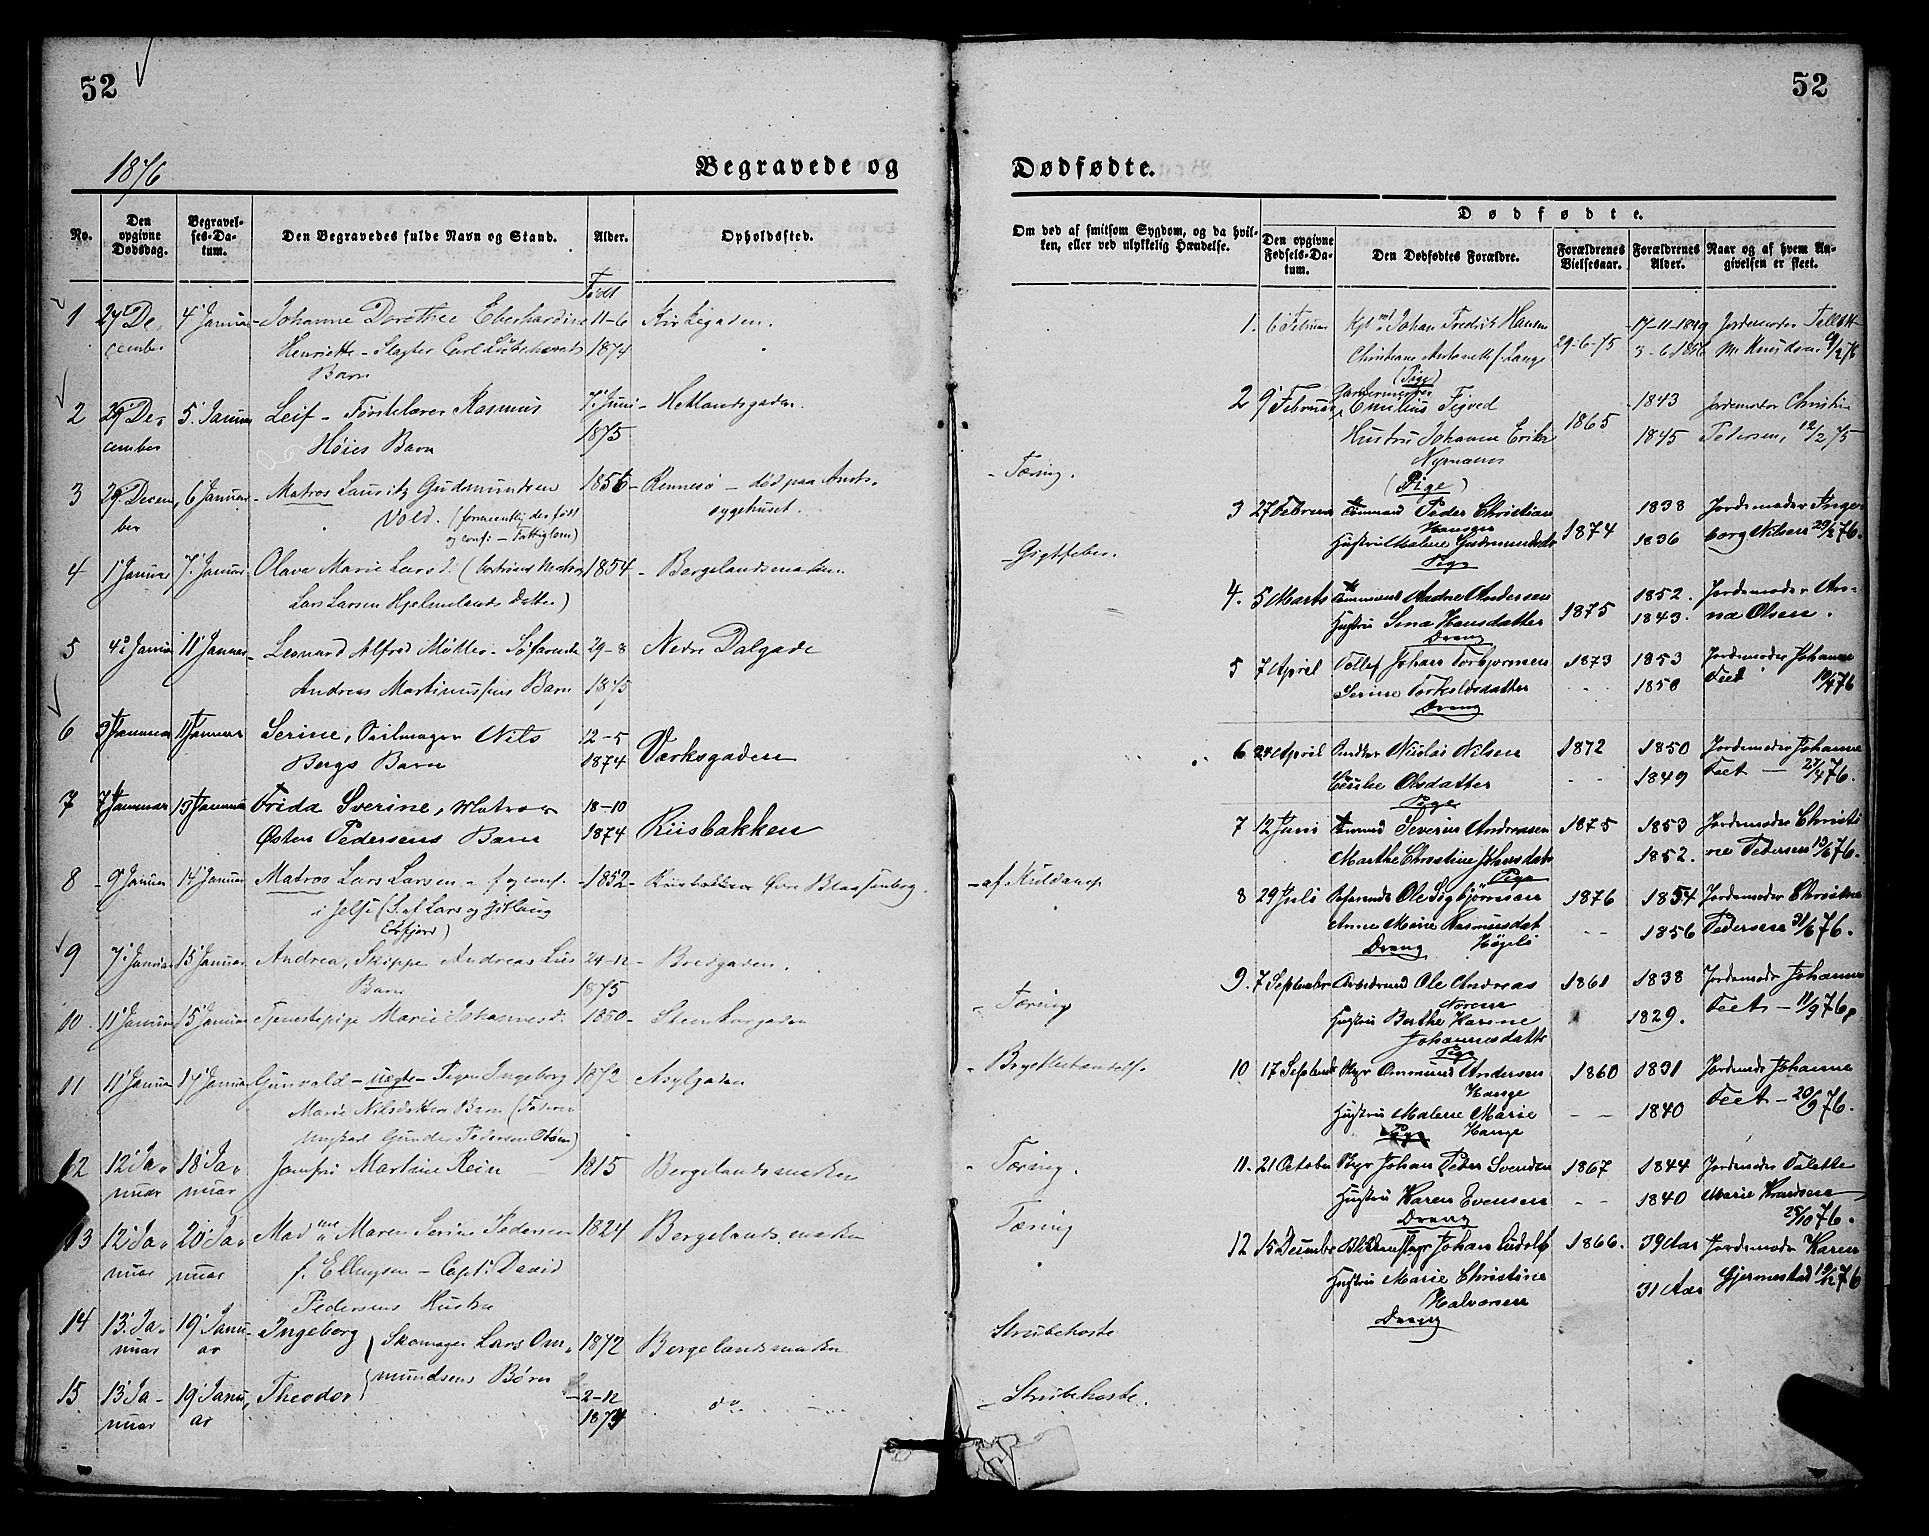 52
52
1876
Begravede og
Dødfødte.
No.
Den opgivne Dødsdag.
Begravelses-Datum.
Den Begravedes fulde Navn og Stand.
Alder.
Opholdssted.
Om død af smitsom Sygdom, og da hvilken, eller ved ulykkelig Hændelse.
Dødfødte.
Den opgivne Fødsels-Datum.
Den Dødfødtes Forældre.
Forældrenes Vielsesaar.
Forældrenes Alder.
Naar og af hvem Angivelsen er skeet.
Født
1 27 De- 4 Januar Johanne Dorothee Eberhardine 11-6 Kirkegaden.
cember Henriette - Slagter Carl 1874
Barn
2 29 De- 5. Januar Leif - Førstelærer Rasmus 7. Juni Hetlandsgaden.
cember Høies Barn 1875
3 29. Decem- 6 Januar Matros Lauritz Gudmundsen Rennesø - død paa Amts-
ber Vold. (formentlig der født sygehuset. Tæring.
og conf. - Fattiglem)
4 1 Januar 7. Januar Olava Marie Larsd. ( Matros 1854 Bergelandsmarken. Gigtfeber.
Lars Larsen Hjelmelands Datter)
5 4 Januar 11 Januar Leonard Alfred Møller - Søfarende 29-8 Nedre Dalgade
Andreas Martinussens Barn 1875
6 Januar 11 Januar Serine, Seilmager Nils 12-5 Værksgaden
Bergs Barn 1874
7 7 Januar 13 Januar Frida Sverine, Matros 18-10 Riisbakken
Østen Pedersens Barn 1874
8 9 Januar 14 Januar Matros Lars Larsen - f og conf. 1852 Øvre Blaasenborg. af Kuldamp
i Jelse (S. af Lars og
9 7. Januar 15 Januar Andrea, Skipper Andreas Lies 24-12 Bredgaden.
Barn 1875
10. 11 Januar 15 Januar Tjenestepige Marie Johannesd. 1850 Steenkargaden Tæring
11 11 Januar 17 Januar Gunvald - uægte - Pigen Ingeborg 1872 Asylgaden Brystbetændelse.
Marie Nilsdatters Barn (Faderen
Ungkarl Gunder Pedersen
12 12 Ja- 18 Ja- Jomfru Martine Rein 1815 Bergelandsmarken Tæring.
nuar nuar
13 12 Ja- 20 Ja- Madme Maren Serine Pedersen 1824 Bergelandsmarken Tæring
nuar nuar f. Ellingsen - Capt. David
Pedersens Hustru
14 13. Ja- 19 Janu- Ingeborg Skomager Lars Om- 1872 Bergelandsmarken Strubehoste
nuar ar mundsens Børn
15 13 Ja- 19 Janu- Theodor 2-12 do Strubehoste.
nuar ar 1874
1. 6 Februar Johan Fredrik Hansen 29-6-75 17-11-1849 Jordemoder
Christiane Antonette f. Lange 3-6-1856 Knudsen 9/2 76
(Pige)
2 9 Februar Gartnermester Emilius Figved 1865 1843 Jordemoder Christine
Hustru Johanne Erika 1845 Pedersen, 12/2 75
Nymann
(Pige)
3 27 Februar Tømmermand Peder Christian 1874 1838 Jordemoder Inge-
Hansen
Hustru Malene Gudmundsdtr 1836 borg Nilsen 29/2 76.
Pige
4. 5 Marts Andre Andersen 1875 1852. Jordemoder An-
Hustru Sina Hansdatter 1843. na Olsen.
Dreng
5 7 April Tollef Johan Torbjørnsen 1873 1853 Jordemoder Johanne
Serine Torkildsdatter 1850 Feet 10/4 76
Dreng
6 24 April Nicolai Nilsen 1872 1850 Jordemoder Johanne
Cecilie Olsdatter 1849 Feet - 27/4 76.
Pige
7 12 Juni Severin Andreasen 1875 1853 Jordemoder Christi-
Marthe Christine Johnsdatr 1852. ne Pedersen 13/6 76.
Pige
8 29 Juli Søfarende Ole Sigbjørnsen 1876 1854 Jordemoder Christine
Anne Marie Rasmusdat 1856 Pedersen 76.
Dreng Høgeli
9. 7 September Arbeidsmd Ole Andreas 1861 1838 Jordemodr Johanne
Noren
Hustru Berthe Karine 1829. Feet - 11/9 76.
Johannesdatter
Pige
10 17 Septemb Ommund Andersen 1860 1831 Jordemodr Johanne
Hauge
Hustru Malene Marie 1840 Feet - 20/9 76.
Pige Hauge
11. 21 October Johan Peder Svendsen 1867 1844 Jordemoder Talette
Hustru Karen Evensen 1840 Marie Knudsen
Dreng 25/10 76.
12 15 December Johan Ludolf 1866. 39 Aar Jordemoder Karen
Hustru Marie Christine 31 Aar Gjermestad 19/12 76
Halvorsen
Dreng